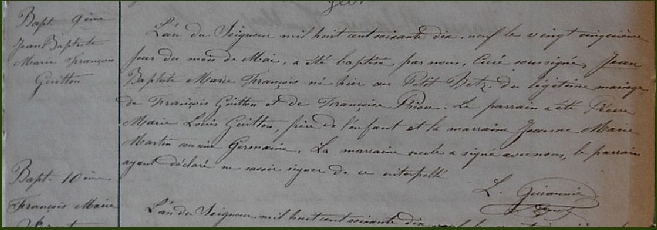 Bapt. 9ème
Jean Baptiste
Marie François
Guitton
L'an du Seigneur mil huit cent soixante dix neuf le vingt cinquième
jour du mois de Mai, a été baptisé par nous, Curé soussigné, Jean
Baptiste Marie François né hier au Petit du légitime mariage
de François Guitton et de Françoise. Le parrain a été Pierre
Marie Louis Guitton, frère de l'enfant et la marraine Jeanne Marie
Martin cousine Germaine. La marraine seule a signé avec nous, le parrain
ayant déclaré ne savoir signer de ce interpellé
L.
Bapt. 10ème
François Marie
L'an du Seigneur mil huit cent soixante dix neuf le